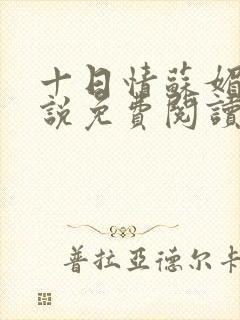 十日情蘇媚
說免費閱讀
普拉亞德尔卡